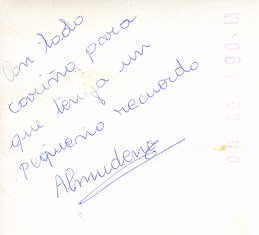 Con todo
cariño para
que tenga un
pequeño recuerdo
Almudena